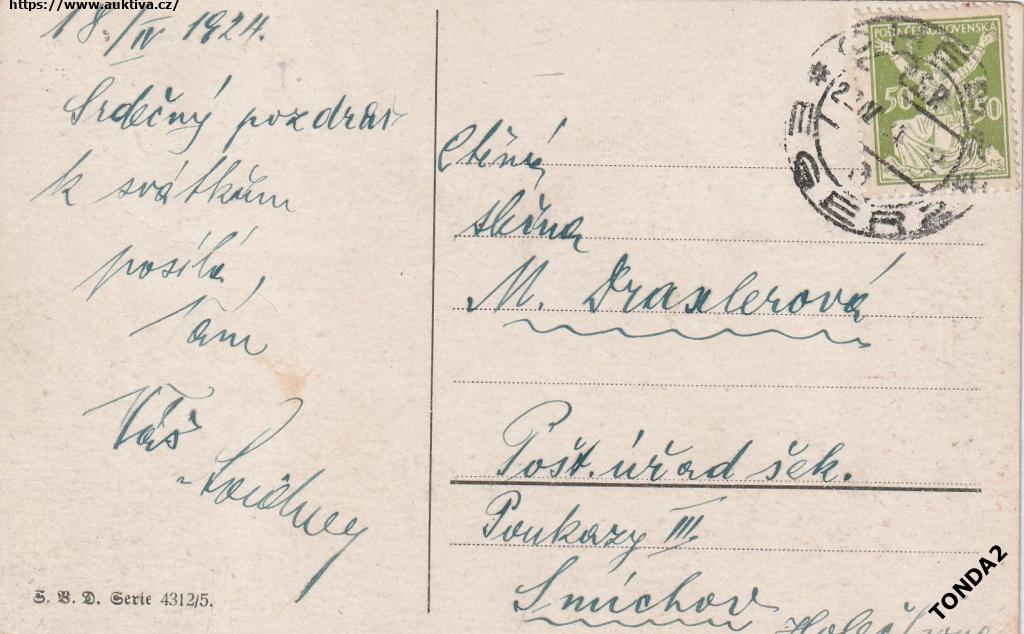 https://www.auktiva.cz/
18./IV 1924.
Srdečný pozdrav
k svátkům
posílá
Vám
Váš
Ctěná
slečna
M. Draxlerová
Pošt. úřad šek.
Poukazy III.
Smíchov
POŠTA ČESKOSLOVENSKÁ
50 50
S. V. D. Serie 4312/5.
TONDA2